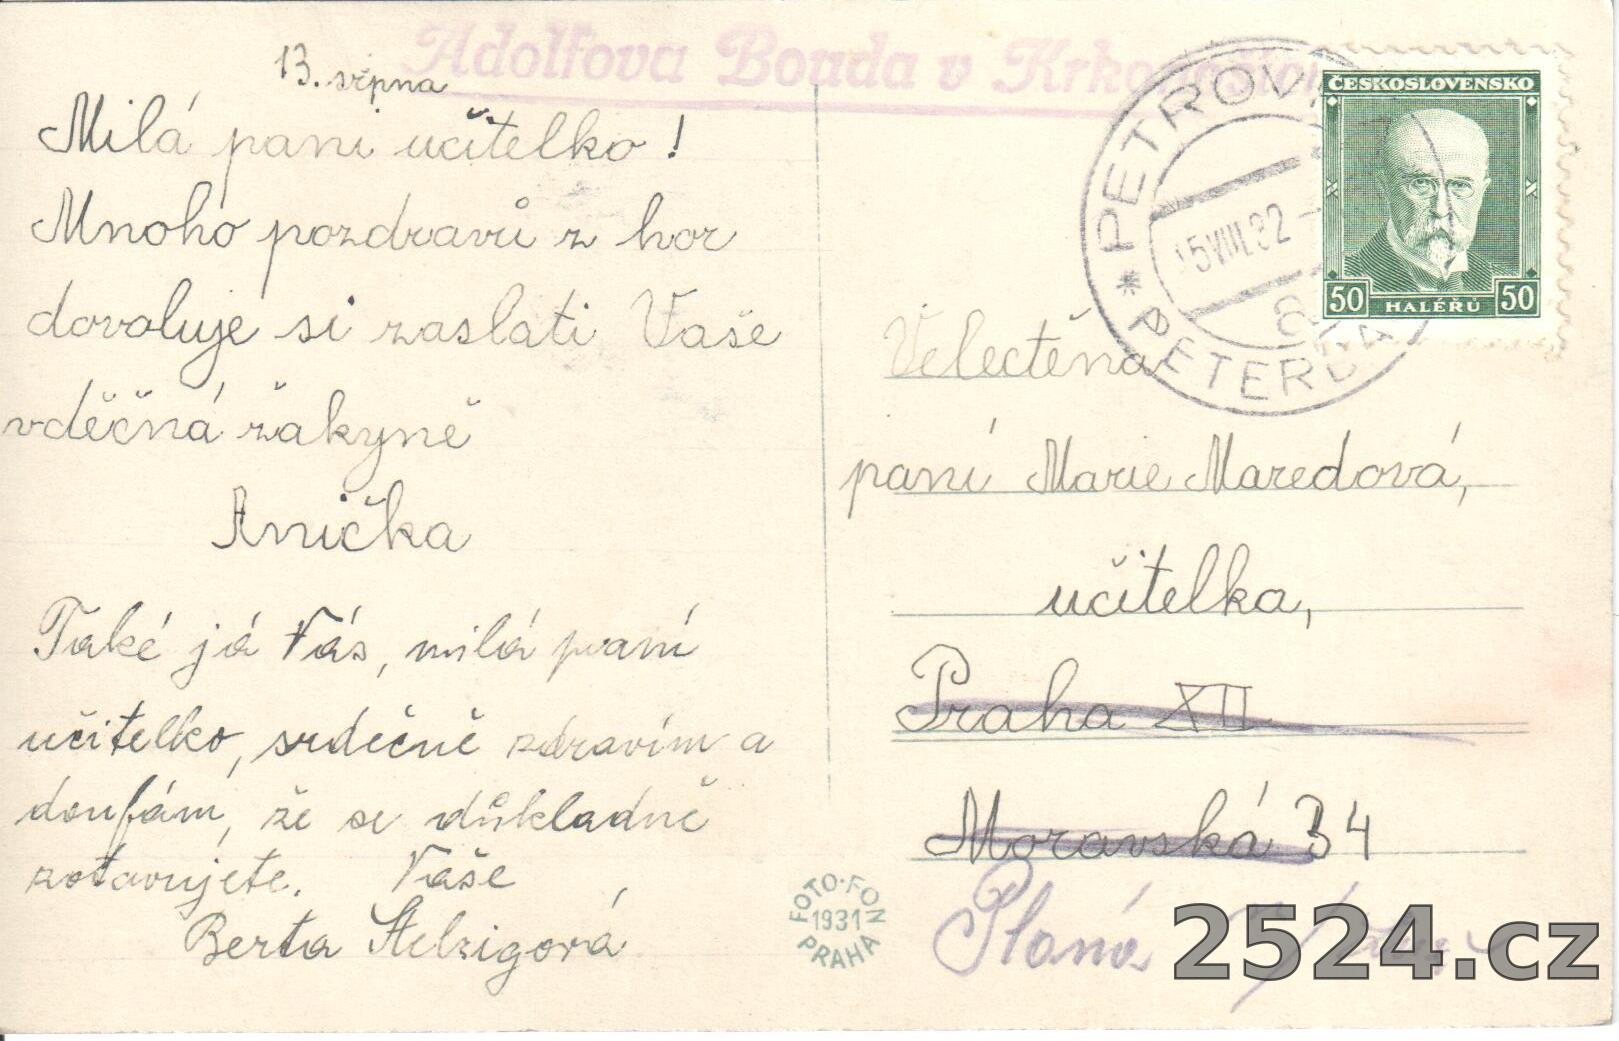 Adolfova Bouda v
13. srpna
Milá paní učitelko!
Mnoho pozdravů z hor
dovoluje si zaslati Vaše
vděčná žákyně
Anička
Také já Vás, milá paní
učitelko, srdečně zdravím a
doufám, že se důkladně
zotavujete. Vaše
Berta Stelzigová
ČESKOSLOVENSKO
50 HALÉŘŮ 50
15 VIII. 32
Velectěná
paní Marie Maredová,
učitelka,
Praha XII
Moravská 34
Planá
FOTO-FON
1931
PRAHA
2524.cz